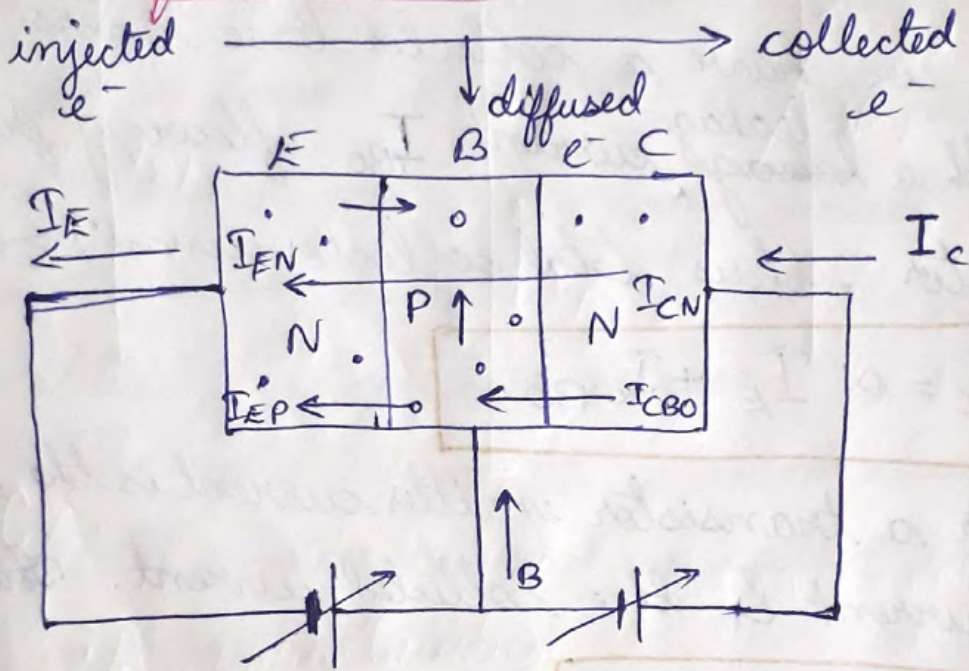 injected → collected
e⁻ diffused e⁻
E B e⁻ C
I_E I_C
I_EN I_CN
N P N
I_EP I_CBO
B